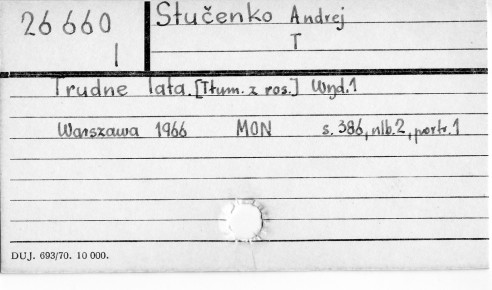 26 660
I
Stučenko Andrej
T
Trudne lata. [Tłum. z ros.] Wyd. 1
Warszawa 1966 MON s. 386, nlb. 2, portr. 1
DUJ. 693/70. 10 000.